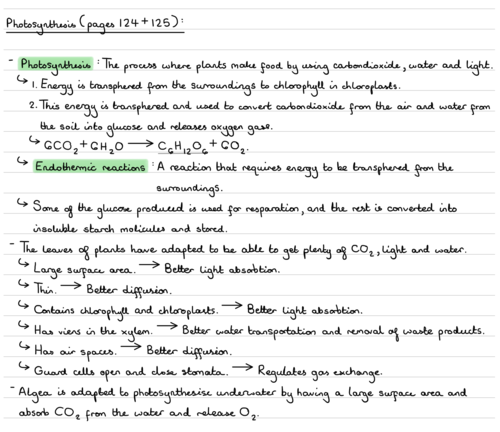 Photosynthesis (pages 124+125):
- Photosynthesis : The process where plants make food by using carbondioxide, water and light.
↳ 1. Energy is transphered from the surroundings to chlorophyll in chloroplasts.
2. This energy is transphered and used to convert carbondioxide from the air and water from
the soil into glucose and releases oxygen gas.
↳ 6CO₂ + 6H₂O ⟶ C₆H₁₂O₆ + 6O₂.
↳ Endothermic reactions : A reaction that requires energy to be transphered from the
surroundings.
↳ Some of the glucose produced is used for resparation, and the rest is converted into
insoluble starch molicules and stored.
- The leaves of plants have adapted to be able to get plenty of CO₂, light and water.
↳ Large surface area. ⟶ Better light absobtion.
↳ Thin. ⟶ Better diffusion.
↳ Contains chlorophyll and chloroplasts. ⟶ Better light absobtion.
↳ Has viens in the xylem. ⟶ Better water transportation and removal of waste products.
↳ Has air spaces. ⟶ Better diffusion.
↳ Guard cells open and close stomata. ⟶ Regulates gas exchange.
- Algea is adapted to photosynthesise underwater by having a large surface area and
absorb CO₂ from the water and release O₂.